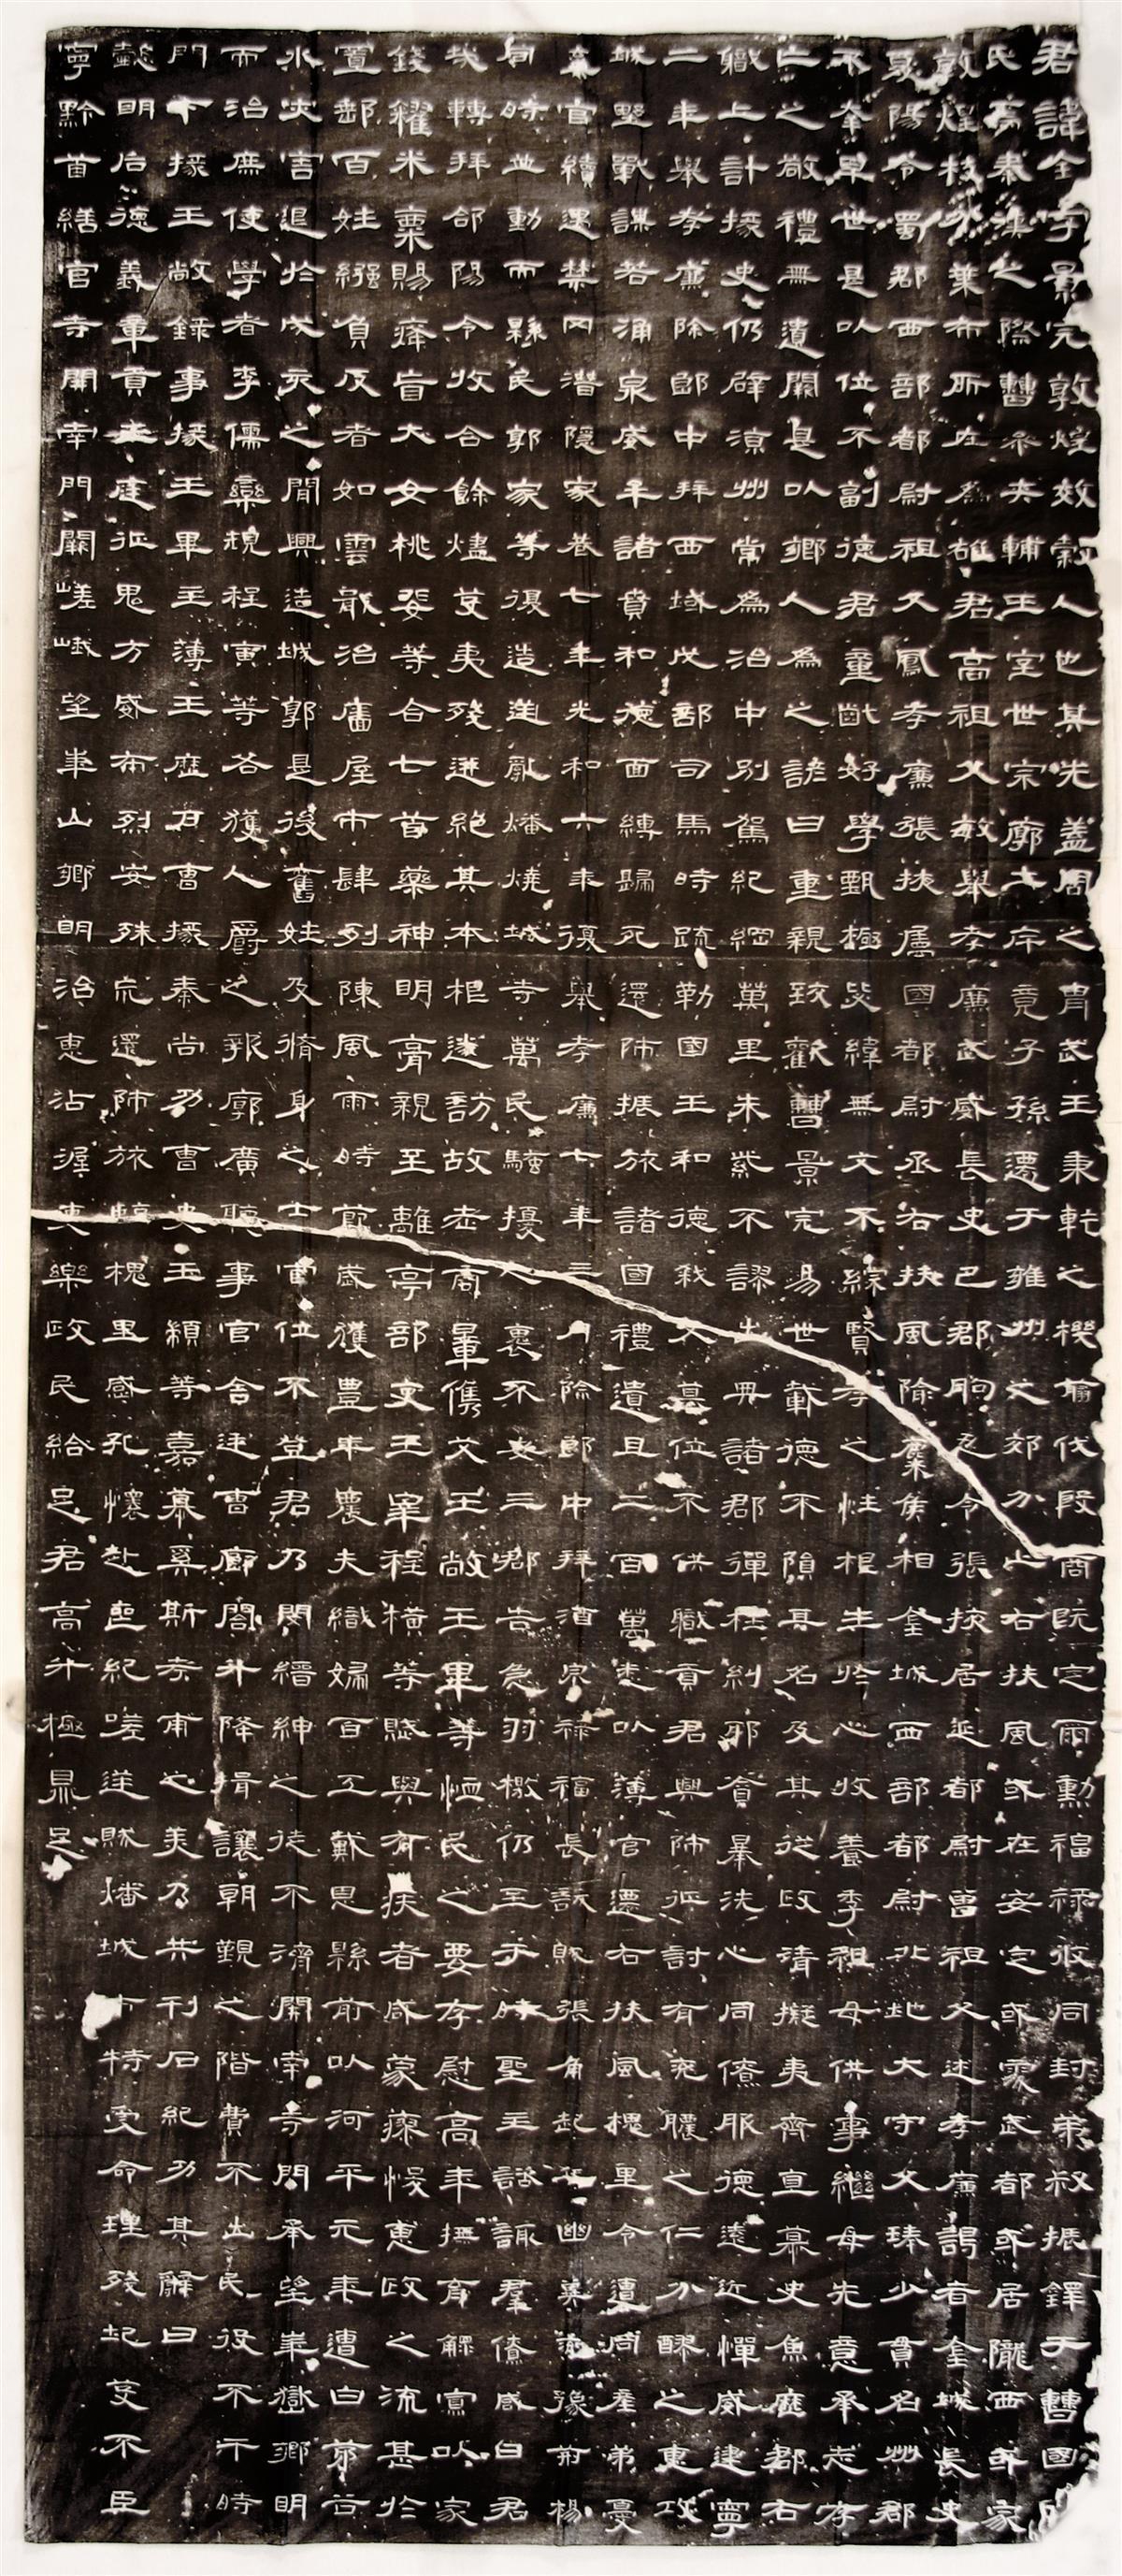 君諱全字景完敦煌效穀人也其先蓋周之胄武王秉乾之機翦伐殷商既定爾勳福祿攸同封弟叔振鐸于曹國因
氏焉秦漢之際曹參夾輔王室世宗廓土斥竟子孫遷于雍州之郊分止右扶風或在安定或處武都或居隴西或家
敦煌枝分葉布所在為雄君高祖父敏舉孝廉武威長史巴郡朐忍令張掖居延都尉曾祖父述孝廉謁者金城長史
夏陽令蜀郡西部都尉祖父鳳孝廉張掖屬國都尉丞右扶風隃麋侯相金城西部都尉北地大守父琫少貫名州郡
不幸早世是以位不副德君童齔好學甄極毖緯無文不綜賢孝之性根生於心收養季祖母供事繼母先意承志存
亡之敬禮無遺闕是以鄉人為之諺曰重親致歡曹景完易世載德不隕其名及其從政清擬夷齊直慕史魚歷郡右
職上計掾史仍辟涼州常為治中別駕紀綱萬里朱紫不謬出典諸郡彈枉糾邪貪暴洗心同僚服德遠近憚威建寧
二年舉孝廉除郎中拜西域戊部司馬時疏勒國王和德弒父篡位不供職貢君興師征討有兗膿之仁分醪之惠攻
城野戰謀若涌泉威牟諸賁和德面縛歸死還師振旅諸國禮遺且二百萬悉以薄官遷右扶風槐里令遭同產弟憂
棄官續遇禁网潛隱家巷七年光和六年復舉孝廉七年三月除郎中拜酒泉祿福長訞賊張角起兵幽冀兗豫荊楊
同時並動而縣民郭家等復造逆亂燔燒城寺萬民騷擾人裹不安三郡告急羽檄仍至于時聖主諮諏群僚咸曰君
哉轉拜郃陽令收合餘燼芟夷殘迸絕其本根遂訪故老商量儁艾王敞王畢等恤民之要存慰高年撫育鰥寡以家
錢糴米粟賜癃盲大女桃婓等合七首藥神明膏親至離亭部吏王宰程橫等賦與有疾者咸蒙瘳悛惠政之流甚於
置郵百姓繈負反者如雲戢治廧屋市肆列陳風雨時節歲獲豐年農夫織婦百工戴恩縣前以河平元年遭白茅谷
水災害退於戍亥之間興造城郭是後舊姓及脩身之士官位不登君乃閔縉紳之徒不濟開南寺門承望華嶽鄉明
而治庶使學者李儒欒規程寅等各獲人爵之報廓廣聽事官舍廷曹廊閣升降揖讓朝覲之階費不出民役不干時
門下掾王敞錄事掾王畢主薄王歷戶曹掾秦尚功曹史王顓等嘉慕奚斯考甫之美乃共刊石紀功其辭曰
懿明后德義章貢王庭征鬼方威布烈安殊巟還師旅臨槐里感孔懷赴喪紀嗟逆賊燔城市特受命理殘圮芟不臣
寧黔首繕官寺開南門闕嵯峨望華山鄉明治惠沾渥吏樂政民給足君高升極鼎足